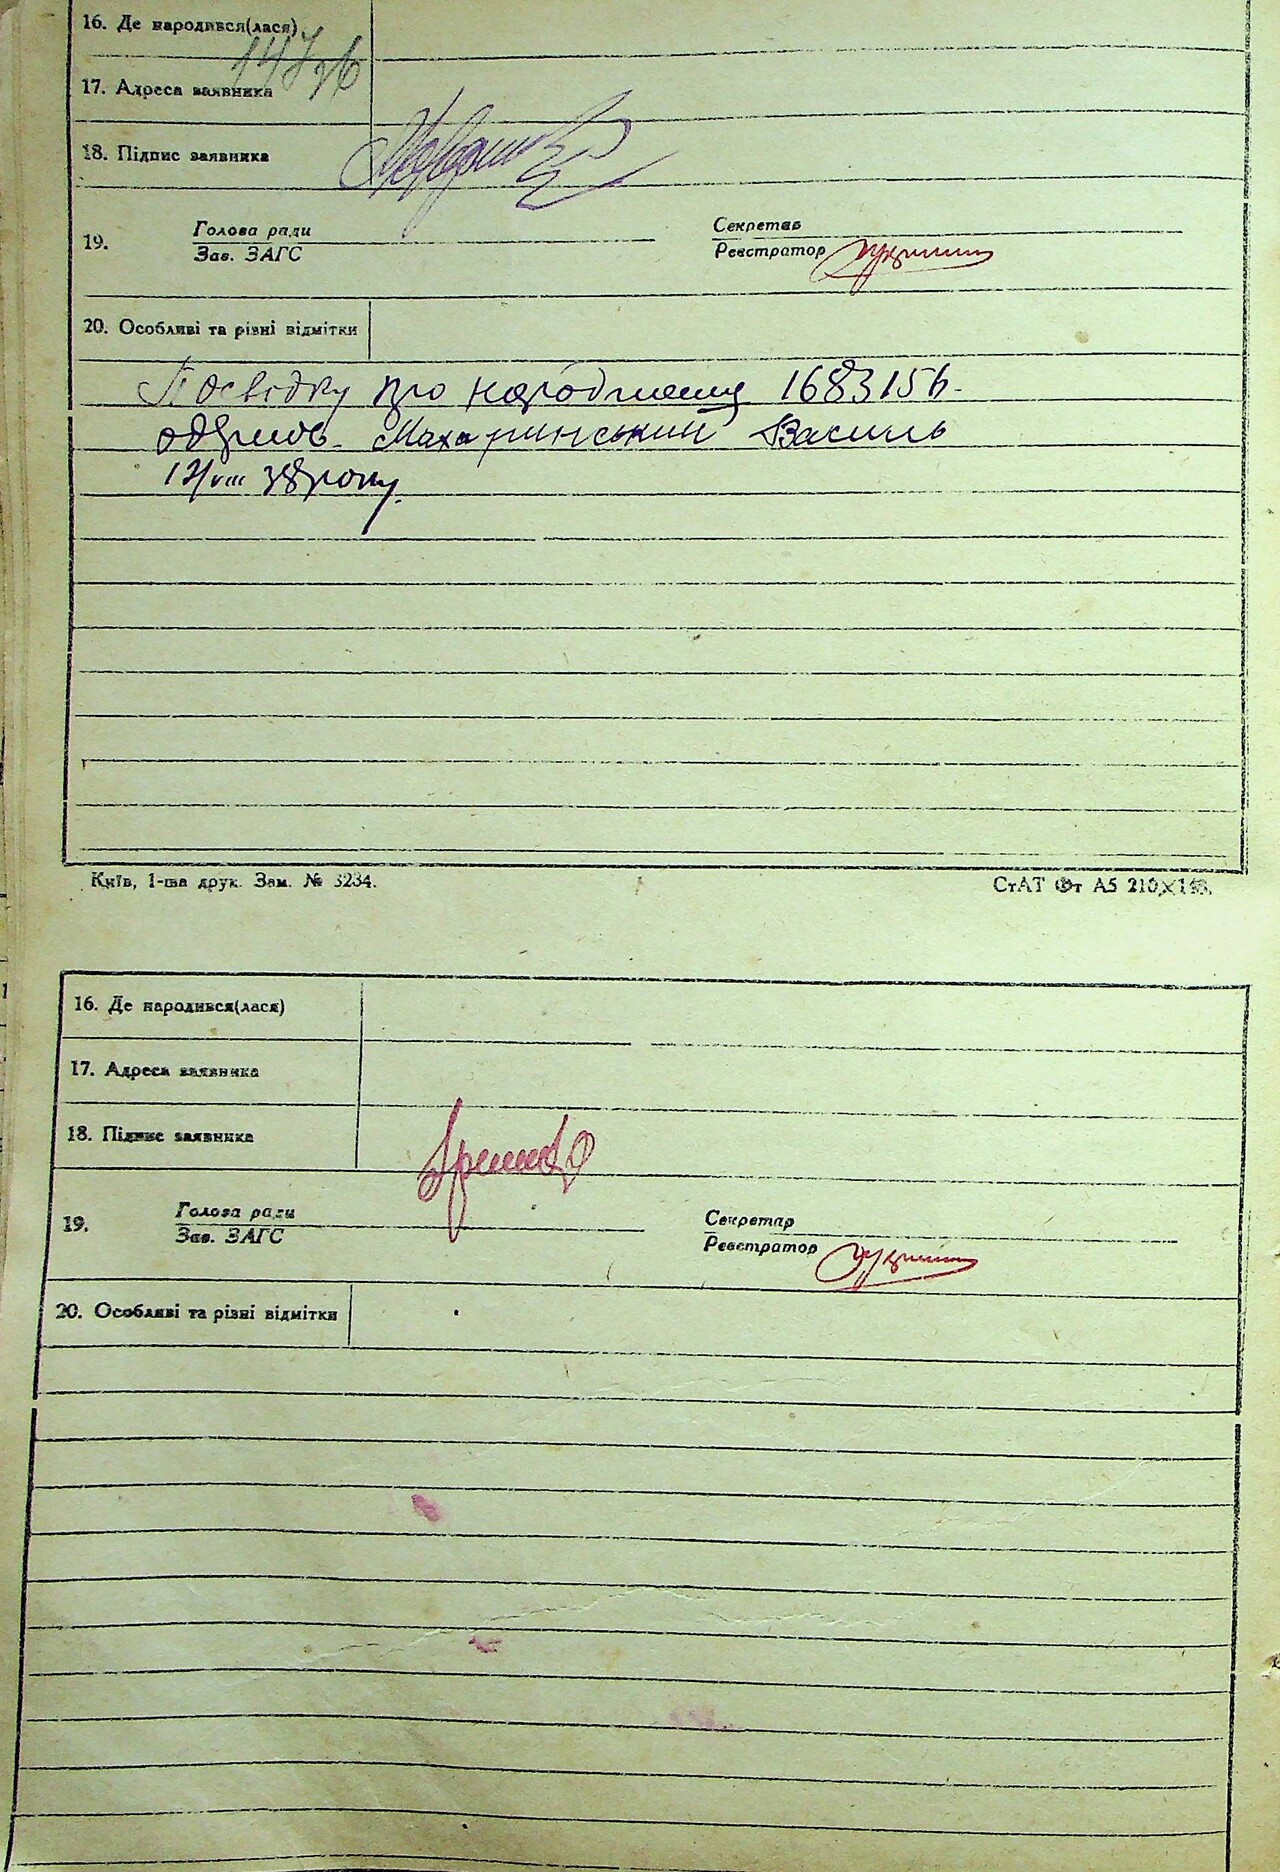 16. Де народився(лася)
147зв
17. Адреса заявника
18. Підпис заявника
19. Голова ради
Зав. ЗАГС
Секретар
Реєстратор
20. Особливі та різні відмітки
Посвідку про народження
одержав. Махаринський Василь
12/VIII 38 року.
Київ, 1-ша друк. Зам. № 3234.
СтАТ Фт А5 210×148.
16. Де народився(лася)
17. Адреса заявника
18. Підпис заявника
19. Голова ради
Зав. ЗАГС
Секретар
Реєстратор
20. Особливі та різні відмітки